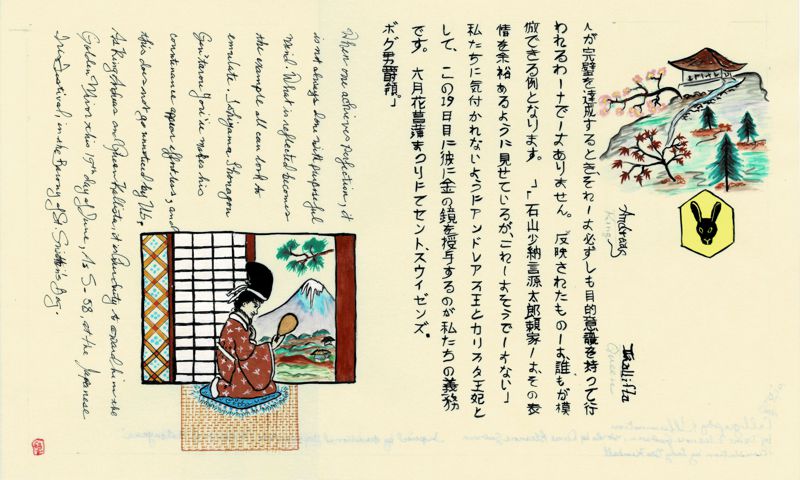 人が完璧を達成するとき、それは必ずしも目的意識を持って行
われるわけではありません。反映されたものは、誰もが模
倣できる例となります。」「石山少納言源太郎頼家は、その表
情を余裕あるように見せているが、これはそうではない」
私たちに気付かれないようにアンドレアス王とカリスタ王妃と
して、この19日目に彼に金の鏡を授与するのが私たちの義務
です。六月花菖蒲まつりにてセント、スウィゼンズ、
ボグ男爵領。」
Andreas
King
Kallista
Queen
When one achieves perfection, it
is not always done with purposeful
mind. What is reflected becomes
the example all can look to
emulate. Ishiyama Shonagon
Gentarou Yori'ie makes his
countenance appear effortless, and
this does not go unnoticed by Us,
As King Andreas and Queen Kallista, it is Our duty to award him the
Golden Mirror this 19th day of June, AS 58, at the Japanese
Iris Festival, in the Barony of St. Swithin's Bog.